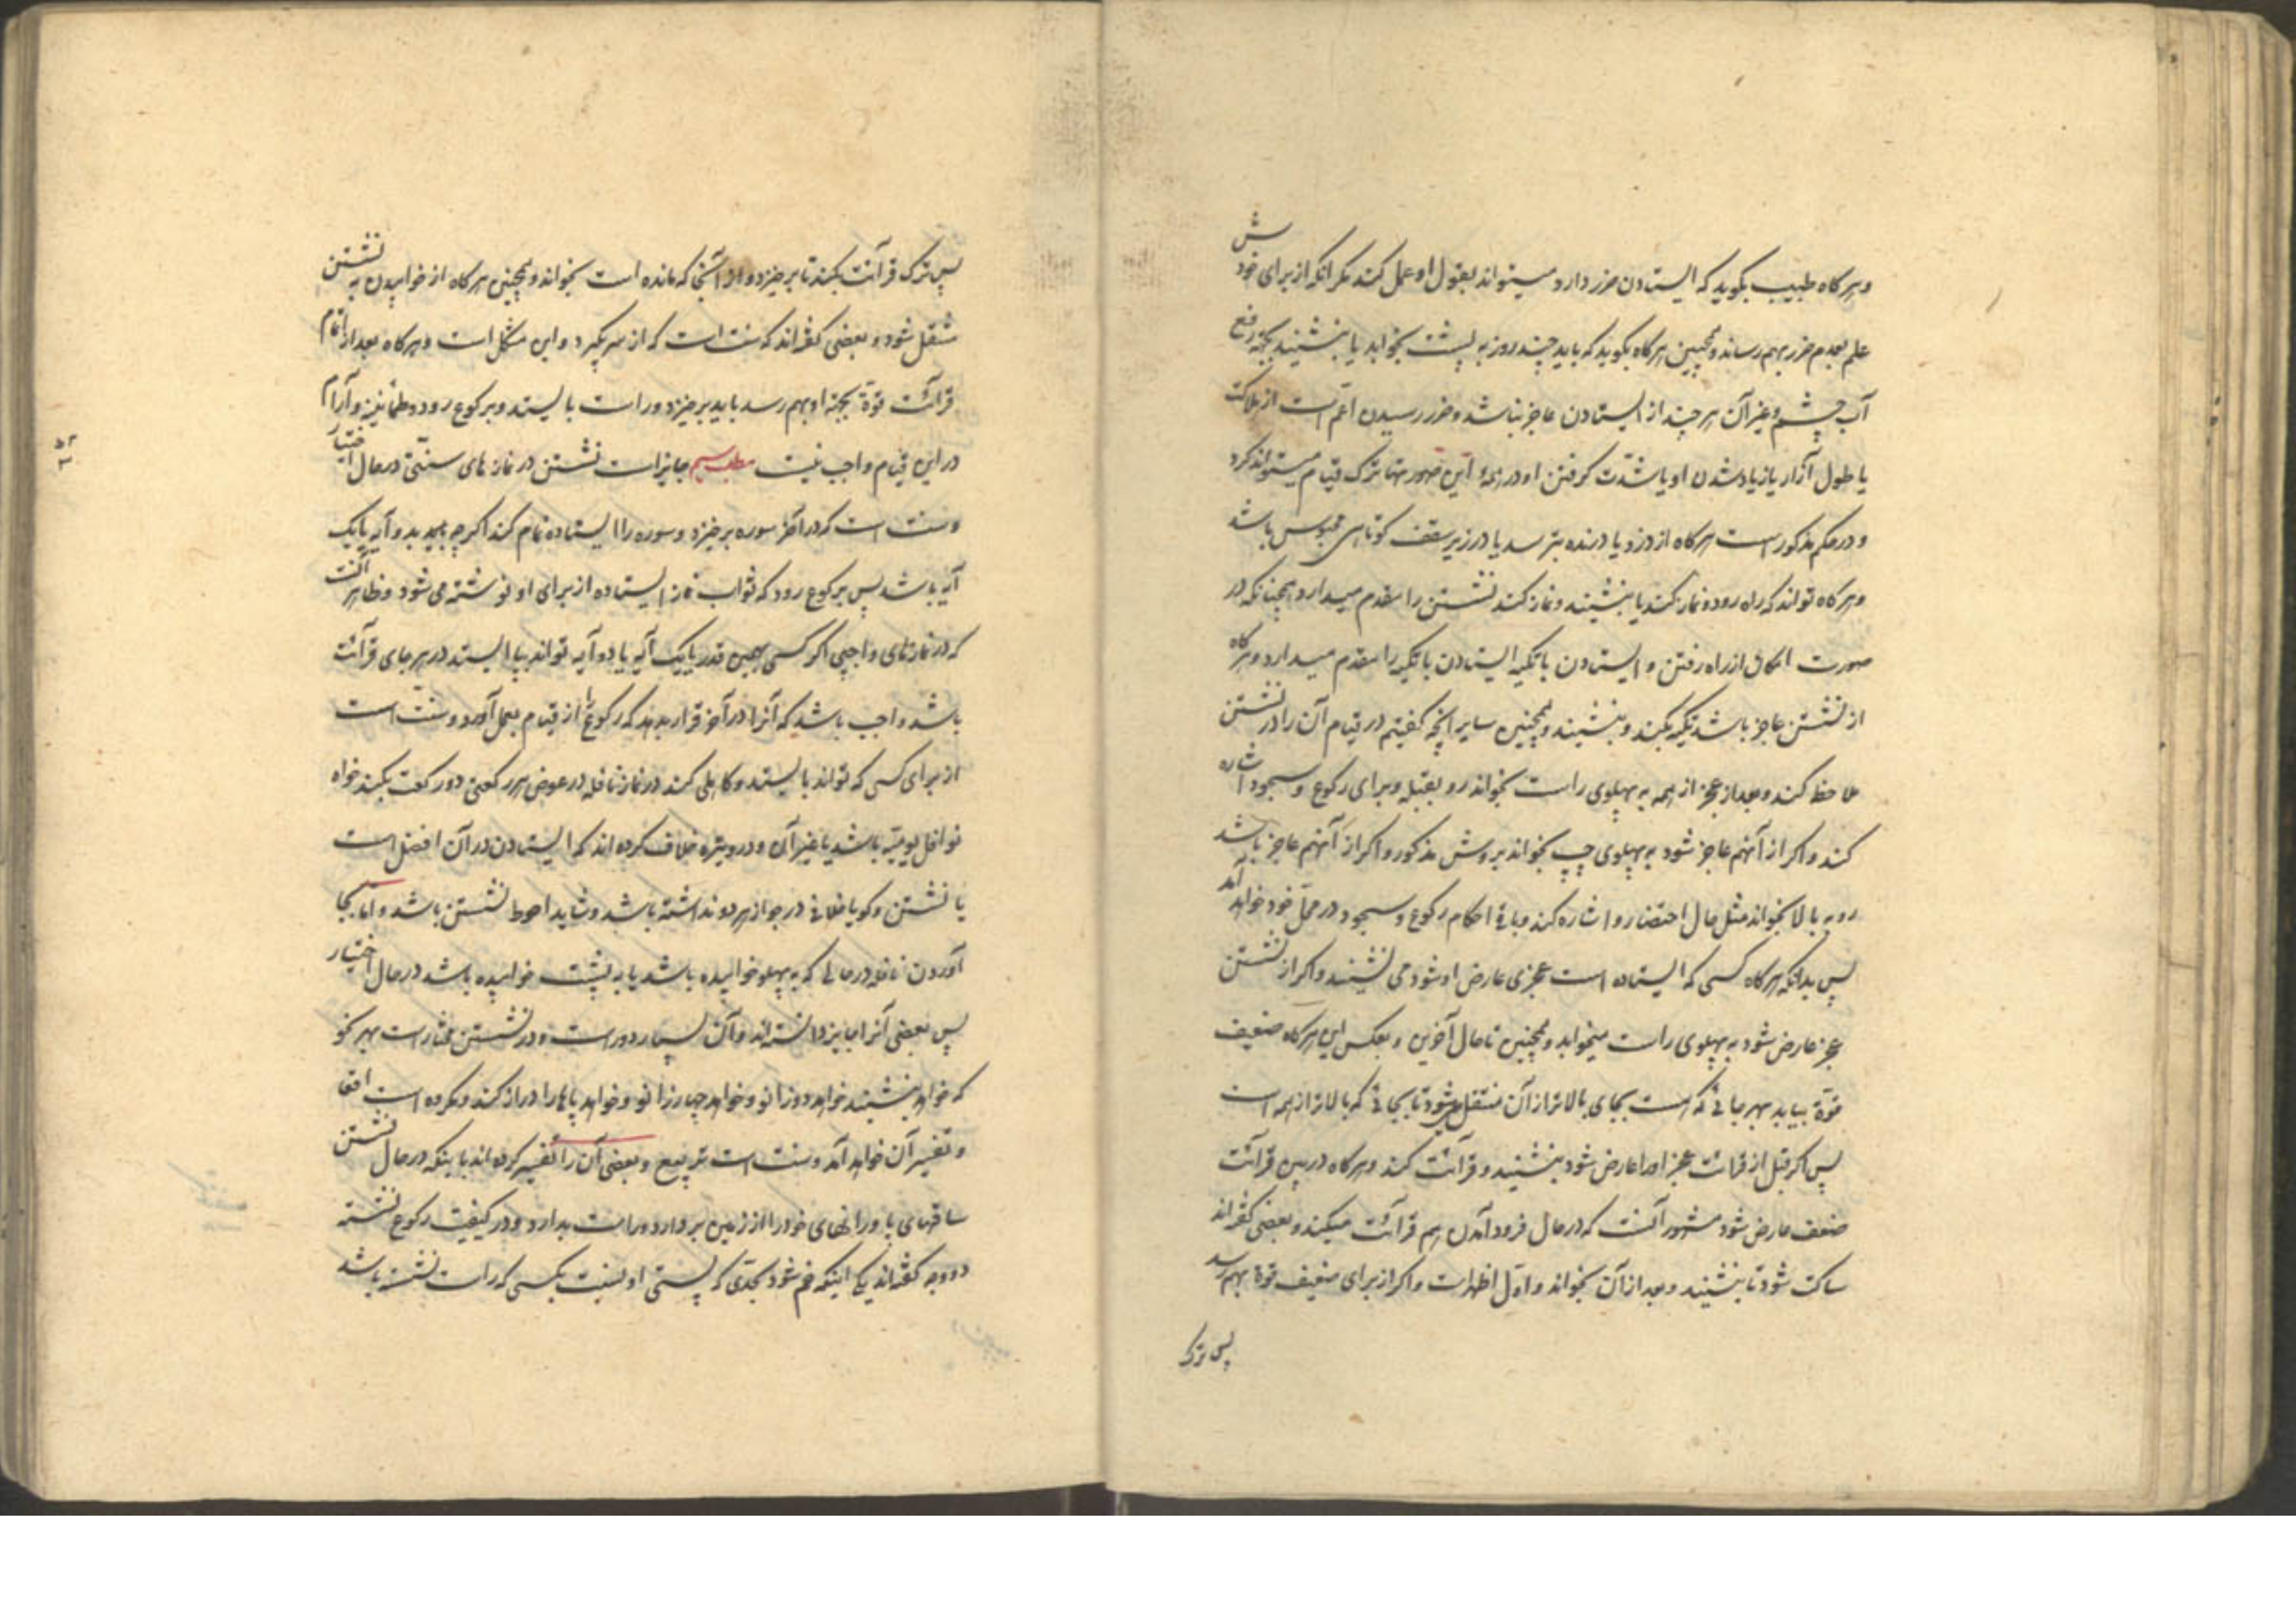 و هرگاه طبیب بگوید که ایستادن ضرر دارد میتواند بقول او عمل کند مگر آنکه از برای خودش
علم بعدم ضرر بهم رساند و همچنین هرگاه بگوید که باید چند روز به پشت بخوابد یا بنشیند بجهة رفع
آب چشم و غیر آن هر چند از ایستادن عاجز نباشد و ضرر رسیدن اعم است از هلاکت
یا طول آزار یا زیاد شدن او یا شدّت گرفتن او در همهٔ این صورتها ترک قیام میتواند کرد
و در حکم مذکور است هرگاه از دزد یا درنده بترسد یا در زیر سقف کوتاهی محبوس باشد
و هرگاه تواند که راه رود و نماز کند یا بنشیند و نماز کند نشستن را مقدم میدارد همچنانکه در
صورت امکان از راه رفتن و ایستادن با تکیه ایستادن با تکیه را مقدم میدارد و هرگاه
از نشستن عاجز باشد تکیه بکند و بنشیند و همچنین سایر آنچه گفتیم در قیام آن را در نشستن
ملاحظه کند و بعد از عجز از همه به پهلوی راست بخواند رو بقبله و برای رکوع و سجود اشاره
کند و اگر از آنهم عاجز شود به پهلوی چپ بخواند بروش مذکور و اگر از آنهم عاجز باشد
رو به بالا بخواند مثل حال احتضار و اشاره کند و باقی احکام رکوع و سجود در محلّ خود خواهد آمد
پس بدانکه هرگاه کسی که ایستاده است عجزی عارض او شود می نشیند و اگر از نشستن
عجز عارض شود به پهلوی راست میخوابد و همچنین تا حال آخرین و بعکس این هرگاه ضعیف
قوّة بیابد بهر جائی که هست بجای بالاتر از آن منتقل میشود تا بجائی که بالاتر از همه است
پس اگر قبل از قرائت عجز او را عارض شود بنشیند و قرائت کند و هرگاه در بین قرائت
ضعف عارض شود مشهور آنست که در حال فرود آمدن هم قرائت میکند و بعضی گفته‌اند
ساکت شود تا بنشیند و بعد از آن بخواند و اوّل اظهر است و اگر از برای ضعیف قوة بهم رسد
پس ترک
پس ترک قرائت بکند تا برخیزد و از آنجا که مانده است بخواند و همچنین هرگاه از خوابیدن به نشستن
منتقل شود و بعضی گفته‌اند که سنت است که از سر بگیرد و این مشکل است و هرگاه بعد از اتمام
قرائت قوة بجهة او بهم رسد باید برخیزد و راست بایستد و برکوع رود و طمأنینه و آرام
در این قیام واجب نیست مطلب سیم جایز است نشستن در نمازهای سنتی در حال اختیار
و سنت است که در آخر سوره برخیزد و سوره را ایستاده تمام کند اگرچه بچند آیه یا یک
آیه باشد پس برکوع رود که ثواب نماز ایستاده از برای او نوشته می شود و ظاهر آنست
که در نمازهای واجبی اگر کسی همین قدر یا یک آیه یا دو آیه تواند بپا ایستد در هر جای قرائت
باشد واجب باشد که آنرا در آخر قرار بدهد که رکوع را از قیام بعمل آورد و سنّت است
از برای کسی که تواند بایستد و کاهلی کند در نماز نافله در عوض هر رکعتی دو رکعت بکند خواه
نوافل یومیّه باشد یا غیر آن و در وتیره خلاف کرده‌اند که ایستادن در آن افضل است
یا نشستن و گویا خلافی در جواز هر دو نداشته باشد و شاید احوط نشستن باشد و امّا بجا
آوردن نافله در حالی که به پهلو خوابیده باشد یا به پشت خوابیده باشد در حال اختیار
پس بعضی آنرا جایز دانسته‌اند و آن بسیار دور است و در نشستن مختار است بهر نحو
که خواهد بنشیند خواهد دوزانو و خواهد چهارزانو و خواهد پاها را دراز کند و مکروه است اقعا
و تفسیر آن خواهد آمد و سنت است تربیع و بعضی آن را تفسیر کرده‌اند باینکه در حال نشستن
ساقهای پا و رانهای خود را از زمین بردارد و راست بدارد و در کیفیت رکوع نشسته
دو وجه گفته‌اند یکی اینکه خم شود بحدّی که پستی او بنسبت بکسی که راست نشسته باشد